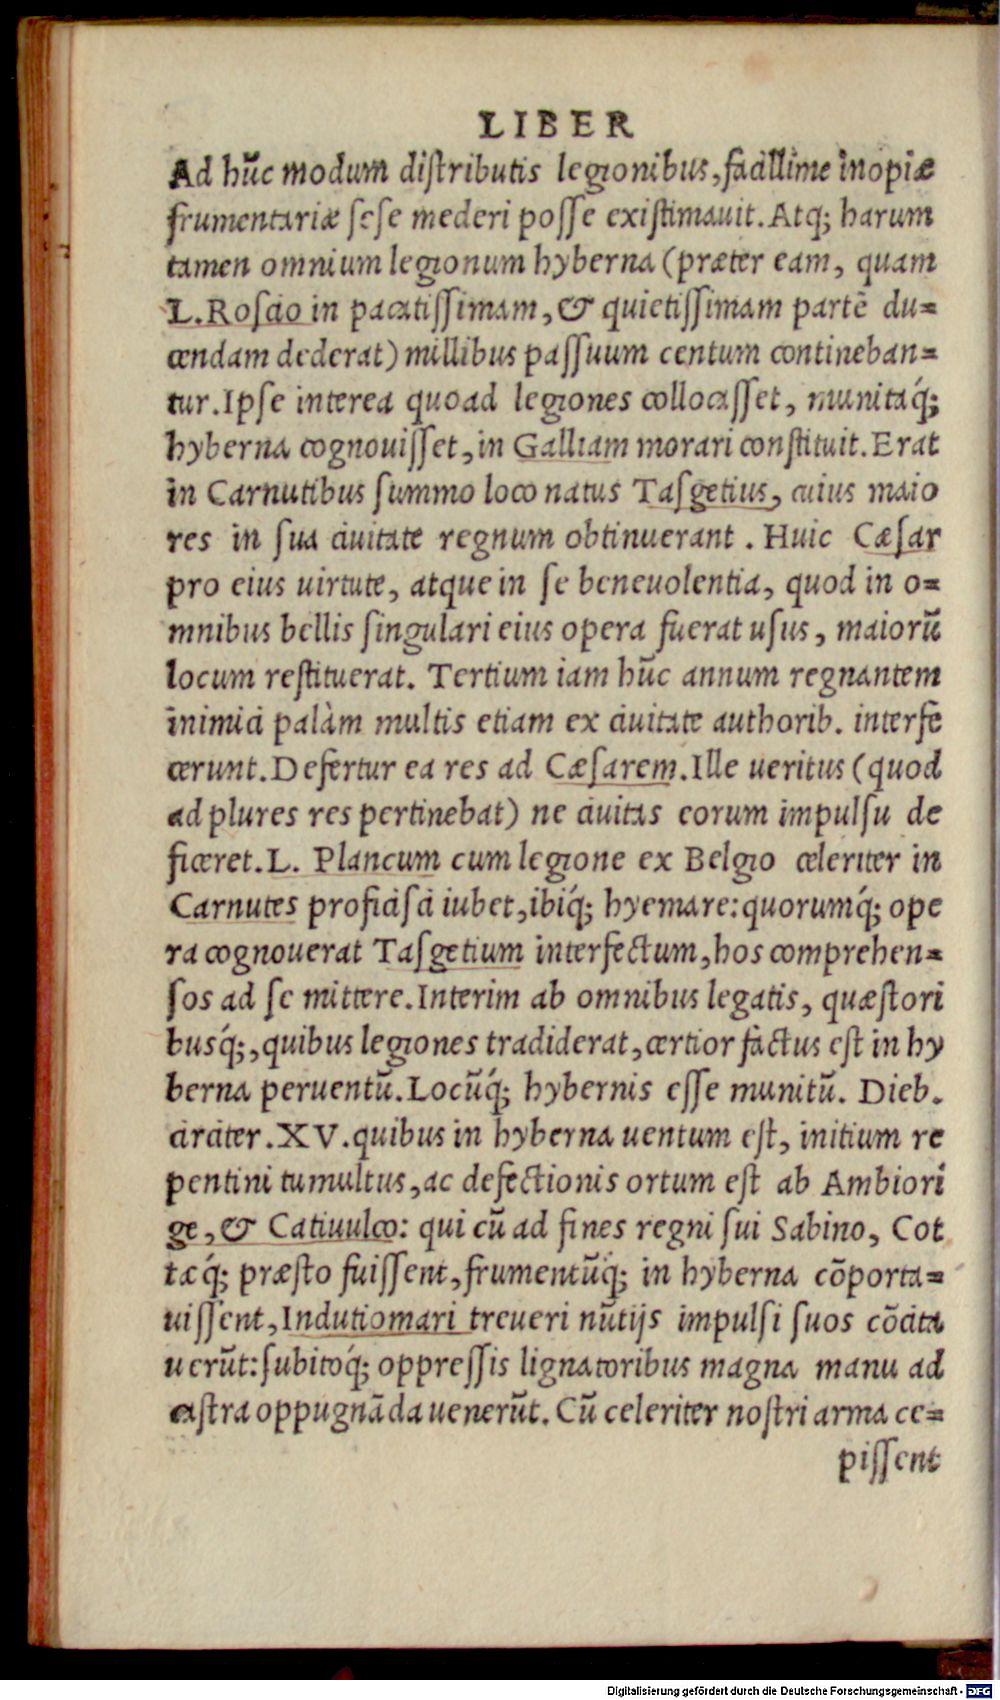 LIBER
Ad hūc modum distributis legionibus, facillime inopiæ
frumentariæ sese mederi posse existimauit. Atq; harum
tamen omnium legionum hyberna (præter eam, quam
L. Roscio in pacatissimam, & quietissimam partē du=
cendam dederat) millibus passuum centum contineban=
tur. Ipse interea quoad legiones collocasset, munitaq́;
hyberna cognouisset, in Galliam morari constituit. Erat
in Carnutibus summo loco natus Tasgetius, cuius maio
res in sua ciuitate regnum obtinuerant. Huic Cæsar
pro eius uirtute, atque in se beneuolentia, quod in o=
mnibus bellis singulari eius opera fuerat usus, maiorū
locum restituerat. Tertium iam hūc annum regnantem
inimici palàm multis etiam ex ciuitate authorib. interfe
cerunt. Defertur ea res ad Cæsarem. Ille ueritus (quod
ad plures res pertinebat) ne ciuitas eorum impulsu de
ficeret. L. Plancum cum legione ex Belgio celeriter in
Carnutes proficisci iubet, ibiq́; hyemare: quorumq́; ope
ra cognouerat Tasgetium interfectum, hos comprehen=
sos ad se mittere. Interim ab omnibus legatis, quæstori
busq́;, quibus legiones tradiderat, certior factus est in hy
berna peruentū. Locūq́; hybernis esse munitū. Dieb.
circiter. XV. quibus in hyberna uentum est, initium re
pentini tumultus, ac defectionis ortum est ab Ambiori
ge, & Catiuulco: qui cū ad fines regni sui Sabino, Cot
tæq́; præsto fuissent, frumentūq́; in hyberna cōporta=
uissent, Indutiomari treueri nūtijs impulsi suos cōcita
uerūt: subitoq́; oppressis lignatoribus magna manu ad
castra oppugnāda uenerūt. Cū celeriter nostri arma ce=
pissent
Digitalisierung gefördert durch die Deutsche Forschungsgemeinschaft - DFG